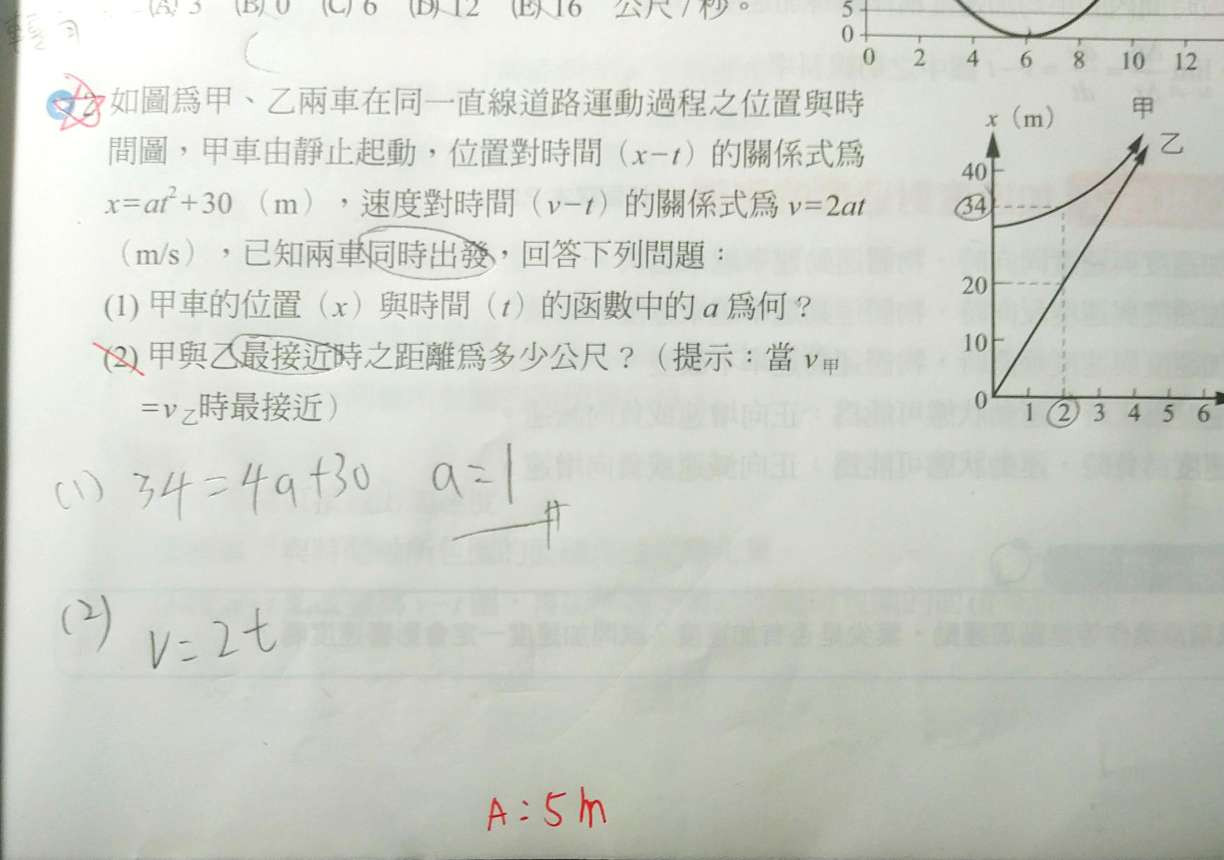 (A) 3 (B) 0 (C) 6 (D) 12 (E) 16 公尺/秒。
C
5
0
0 2 4 6 8 10 12
2 如圖為甲、乙兩車在同一直線道路運動過程之位置與時
間圖,甲車由靜止起動,位置對時間(x-t)的關係式為
x=at²+30(m),速度對時間(v-t)的關係式為 v=2at
(m/s),已知兩車同時出發,回答下列問題:
(1) 甲車的位置(x)與時間(t)的函數中的 a 為何?
(2) 甲與乙最接近時之距離為多少公尺?(提示:當 v甲
=v乙時最接近)
x(m)
甲
乙
40
34
20
10
0
1 2 3 4 5 6
(1) 34=4a+30 a=1
(2) v=2t
A:5m